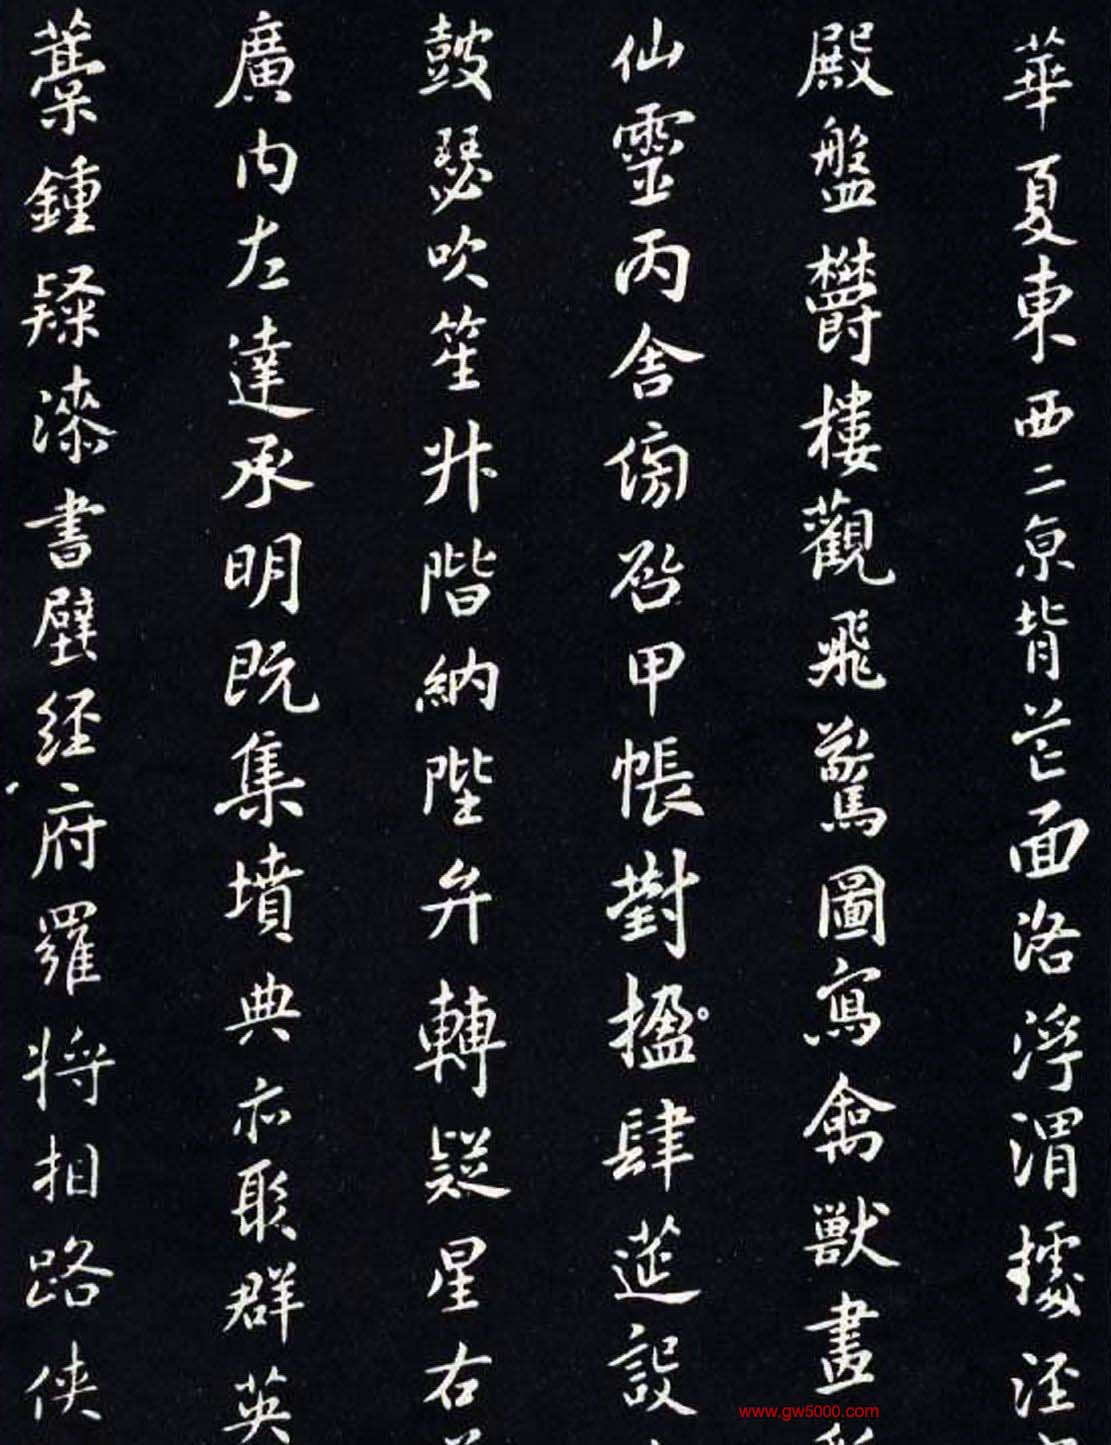 華夏東西二京背芒面洛浮渭據涇
殿盤欝樓觀飛驚圖寫禽獸畫
仙靈丙舍傍启甲帳對楹肆莚設
鼓瑟吹笙升階納陛弁轉疑星右
廣內左達承明既集墳典亦聚群英
藁鍾隸漆書壁経府羅将相路侠
www.gw5000.com